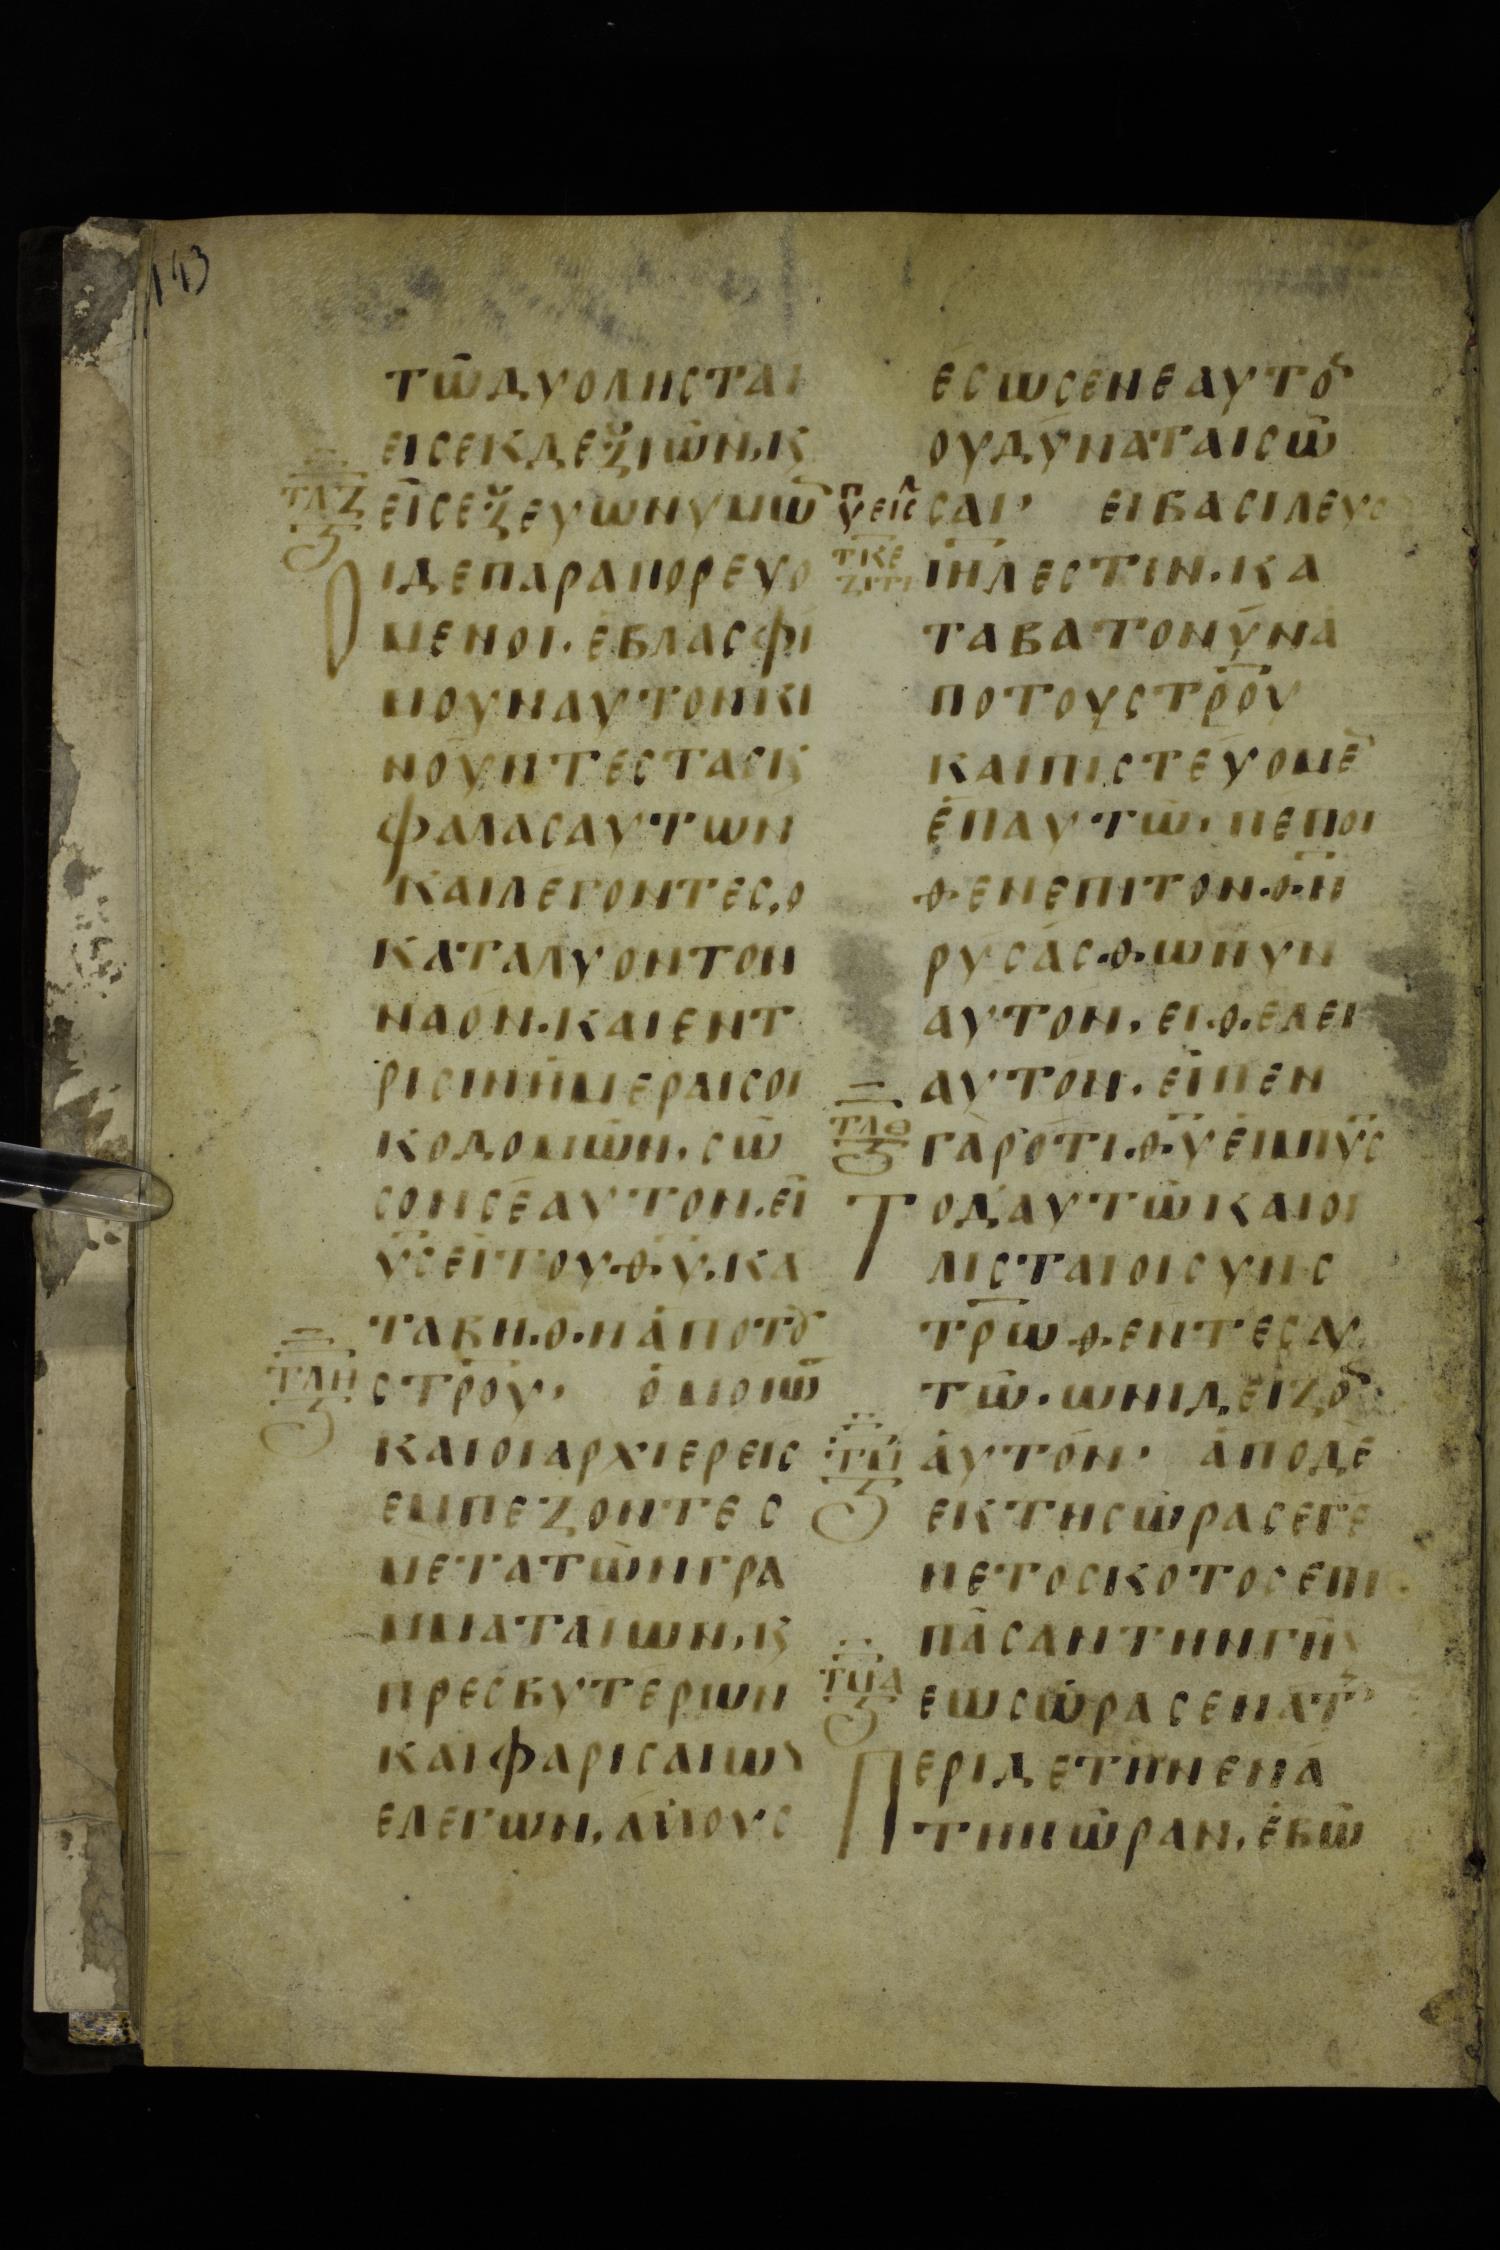 143
τω̅ δυο λησται
εις εκ δεξιων, κ̣
τλζ
ς
εις εξ ευωνυμω̅
Οι δε παραπορευο
μενοι· εβλασφι
μουν αυτον κι
νουντες τας κ̣
φαλας αυτων
και λεγοντες, ο
καταλυον τον
ναον· και εν τ
ρισιν ημεραις οι
κοδομων, σω̅
σον σεαυτον, ει
υ̅ς ει του θ̅υ, κα
ταβηθ̣ηναποτȣ
τλη
ς
στ̅ρου, ομοιω̅
και οι αρχιερεις
εμπεζοντες
μετα των γρα
μματαιων, κ̣
πρεσβυτερων
και φαρισαιων
ελεγων, αλλους
εσωσεν εαυτȣ
ου δυναται σω̅
σαι, ει βασιλευς
τκε
ι̅η̅λ εστιν· κα
ταβατο νυν α
πο του στ̅ρου
και πιστευομε̅
επ αυτω, πεποι
θεν επι τον θ̅ν
ρυσασθω νυν
αυτον, ει θελει
αυτον, ειπεν
τλθ
ς
γαρ οτι θ̅υ ειμι υ̅ς
Το δ αυτω και οι
λισται οι συν σ
τ̅ρωθεντες αυ
τω· ωνιδειζȣ
τμ
ς
αυτον, απο δε
εκτης ωρας εγε
νετο σκοτος επι
πασαν την γην
τμα
ς
εως ωρας ενατ
Περι δε την ενα
την ωραν, εβω̅